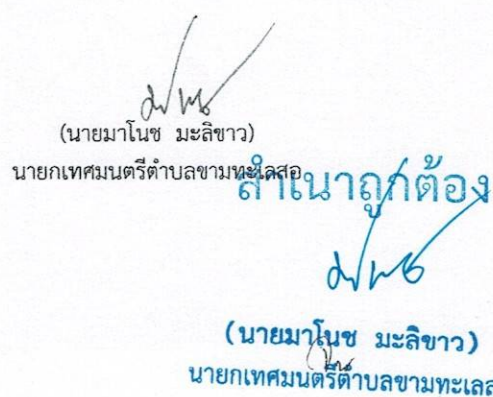 (นายมาโนช มะลิขาว)
นายกเทศมนตรีตำบลขามทะเลสอ
สำเนาถูกต้อง
(นายมาโนช มะลิขาว)
นายกเทศมนตรีตำบลขามทะเลส